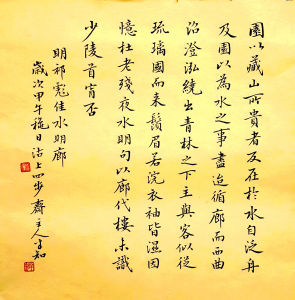 園以藏山所貴者反在於水自泛舟
及園以為水之事盡迨循廊而西曲
沼澄泓繞出青林之下主與客似從
琉璃國而來鬚眉若浣衣袖皆濕因
憶杜老殘夜水明句以廊代樓未識
少陵首肯否
明祁彪佳水明廊
歲次甲午穐日沽上四步齋主人子知